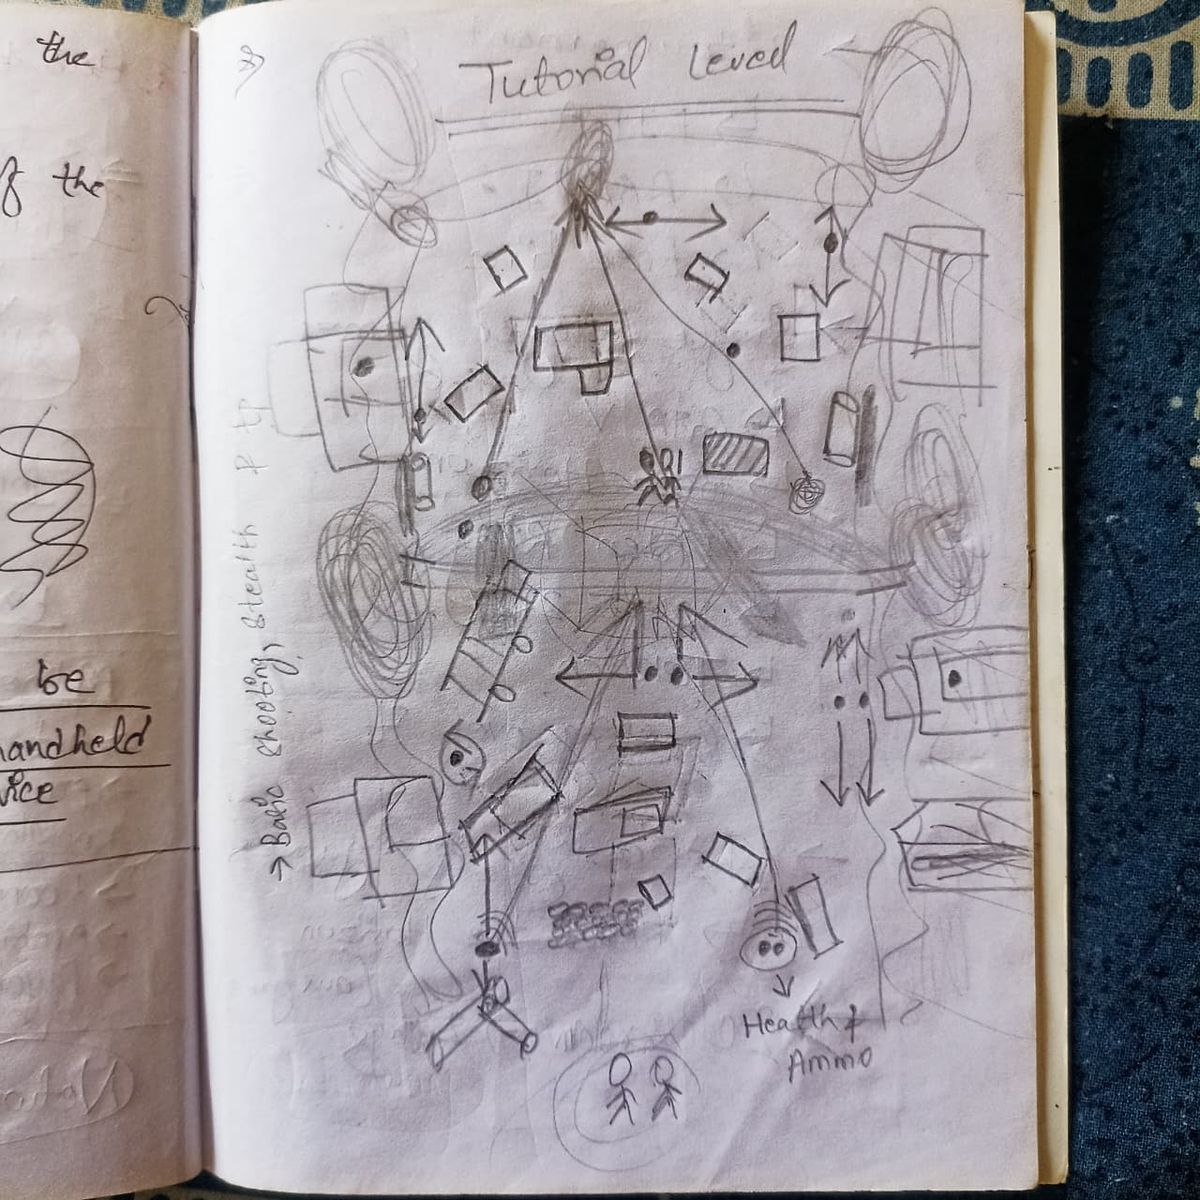 the
of the
be
handheld
vice
Tutorial Level
→ Basic shooting, stealth &
Health &
Ammo